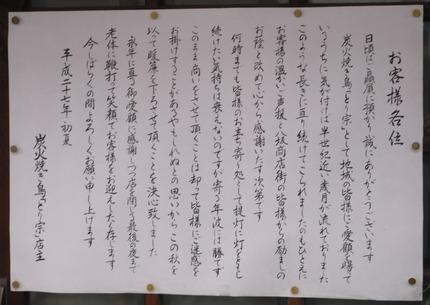 お客様各位
日頃はご贔屓に預かり誠にありがとうございます
炭火焼き鳥「とり宗」として地域の皆様にご愛顧を賜て
いるうちに気が付けば半世紀近い歳月が流れておりました
このような長きに亘り続けてこられましたのもひとえに
お客様の温いご声援と八坂商店街の皆様からの励ましの
お蔭と改めて心から感謝いたす次第です
何時までも皆様のお立ち寄り処として提灯に灯をともし
続けたい気持ちは衰えないのですが寄る年波には勝てず
このまま商いをさせて頂くことは却って皆様にご迷惑を
お掛けすることがあるやもしれぬとの思いからこの秋を
以って暖簾を下ろさせて頂くことを決心致しました
永年に亘る御愛顧に感謝しつつ店を閉じる最後の夜まで
老体に鞭打って笑顔でお客様をお迎えしたく存じます
今しばらくの間よろしくお願い申し上げます
平成二十七年 初夏
炭火焼き鳥「とり宗」店主